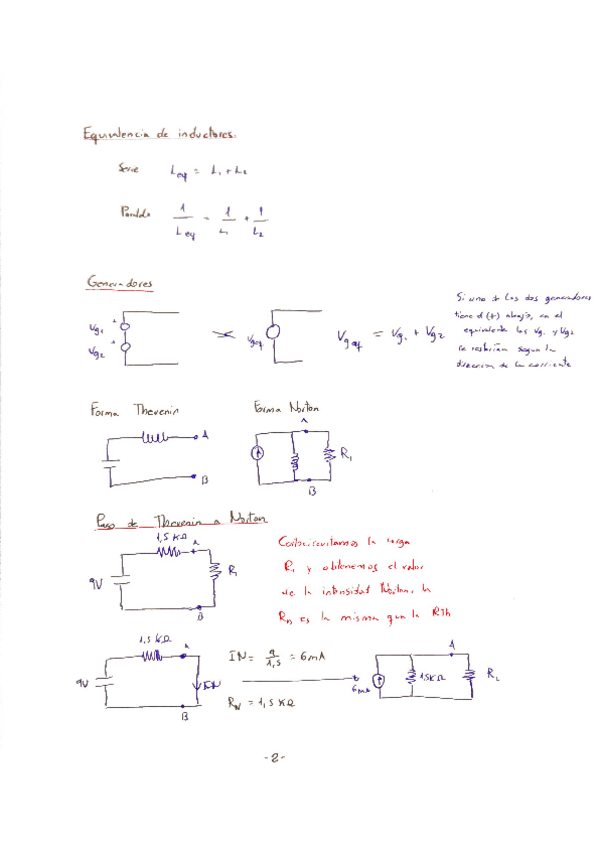 Equivalencia de inductores.
Serie Leq = L1 + L2
Paralelo 1/Leq = 1/L1 + 1/L2
Generadores
Vg1 +
Vg2 +
Vgeq +
Vgeq = Vg1 + Vg2
Si uno de los dos generadores
tiene el (+) abajo, en el
equivalente las Vg1 y Vg2
se restarían según la
dirección de la corriente
Forma Thevenin
A
B
Forma Norton
A
R1
B
Paso de Thevenin a Norton
1,5 KΩ A
9V R1
B
Cortocircuitamos la carga
R1 y obtenemos el valor
de la intensidad Norton, la
RN es la misma que la RTh
1,5 KΩ A
9V IN
B
IN = 9/1,5 = 6mA
RN = 1,5 KΩ
A
6mA 1,5KΩ RL
-2-